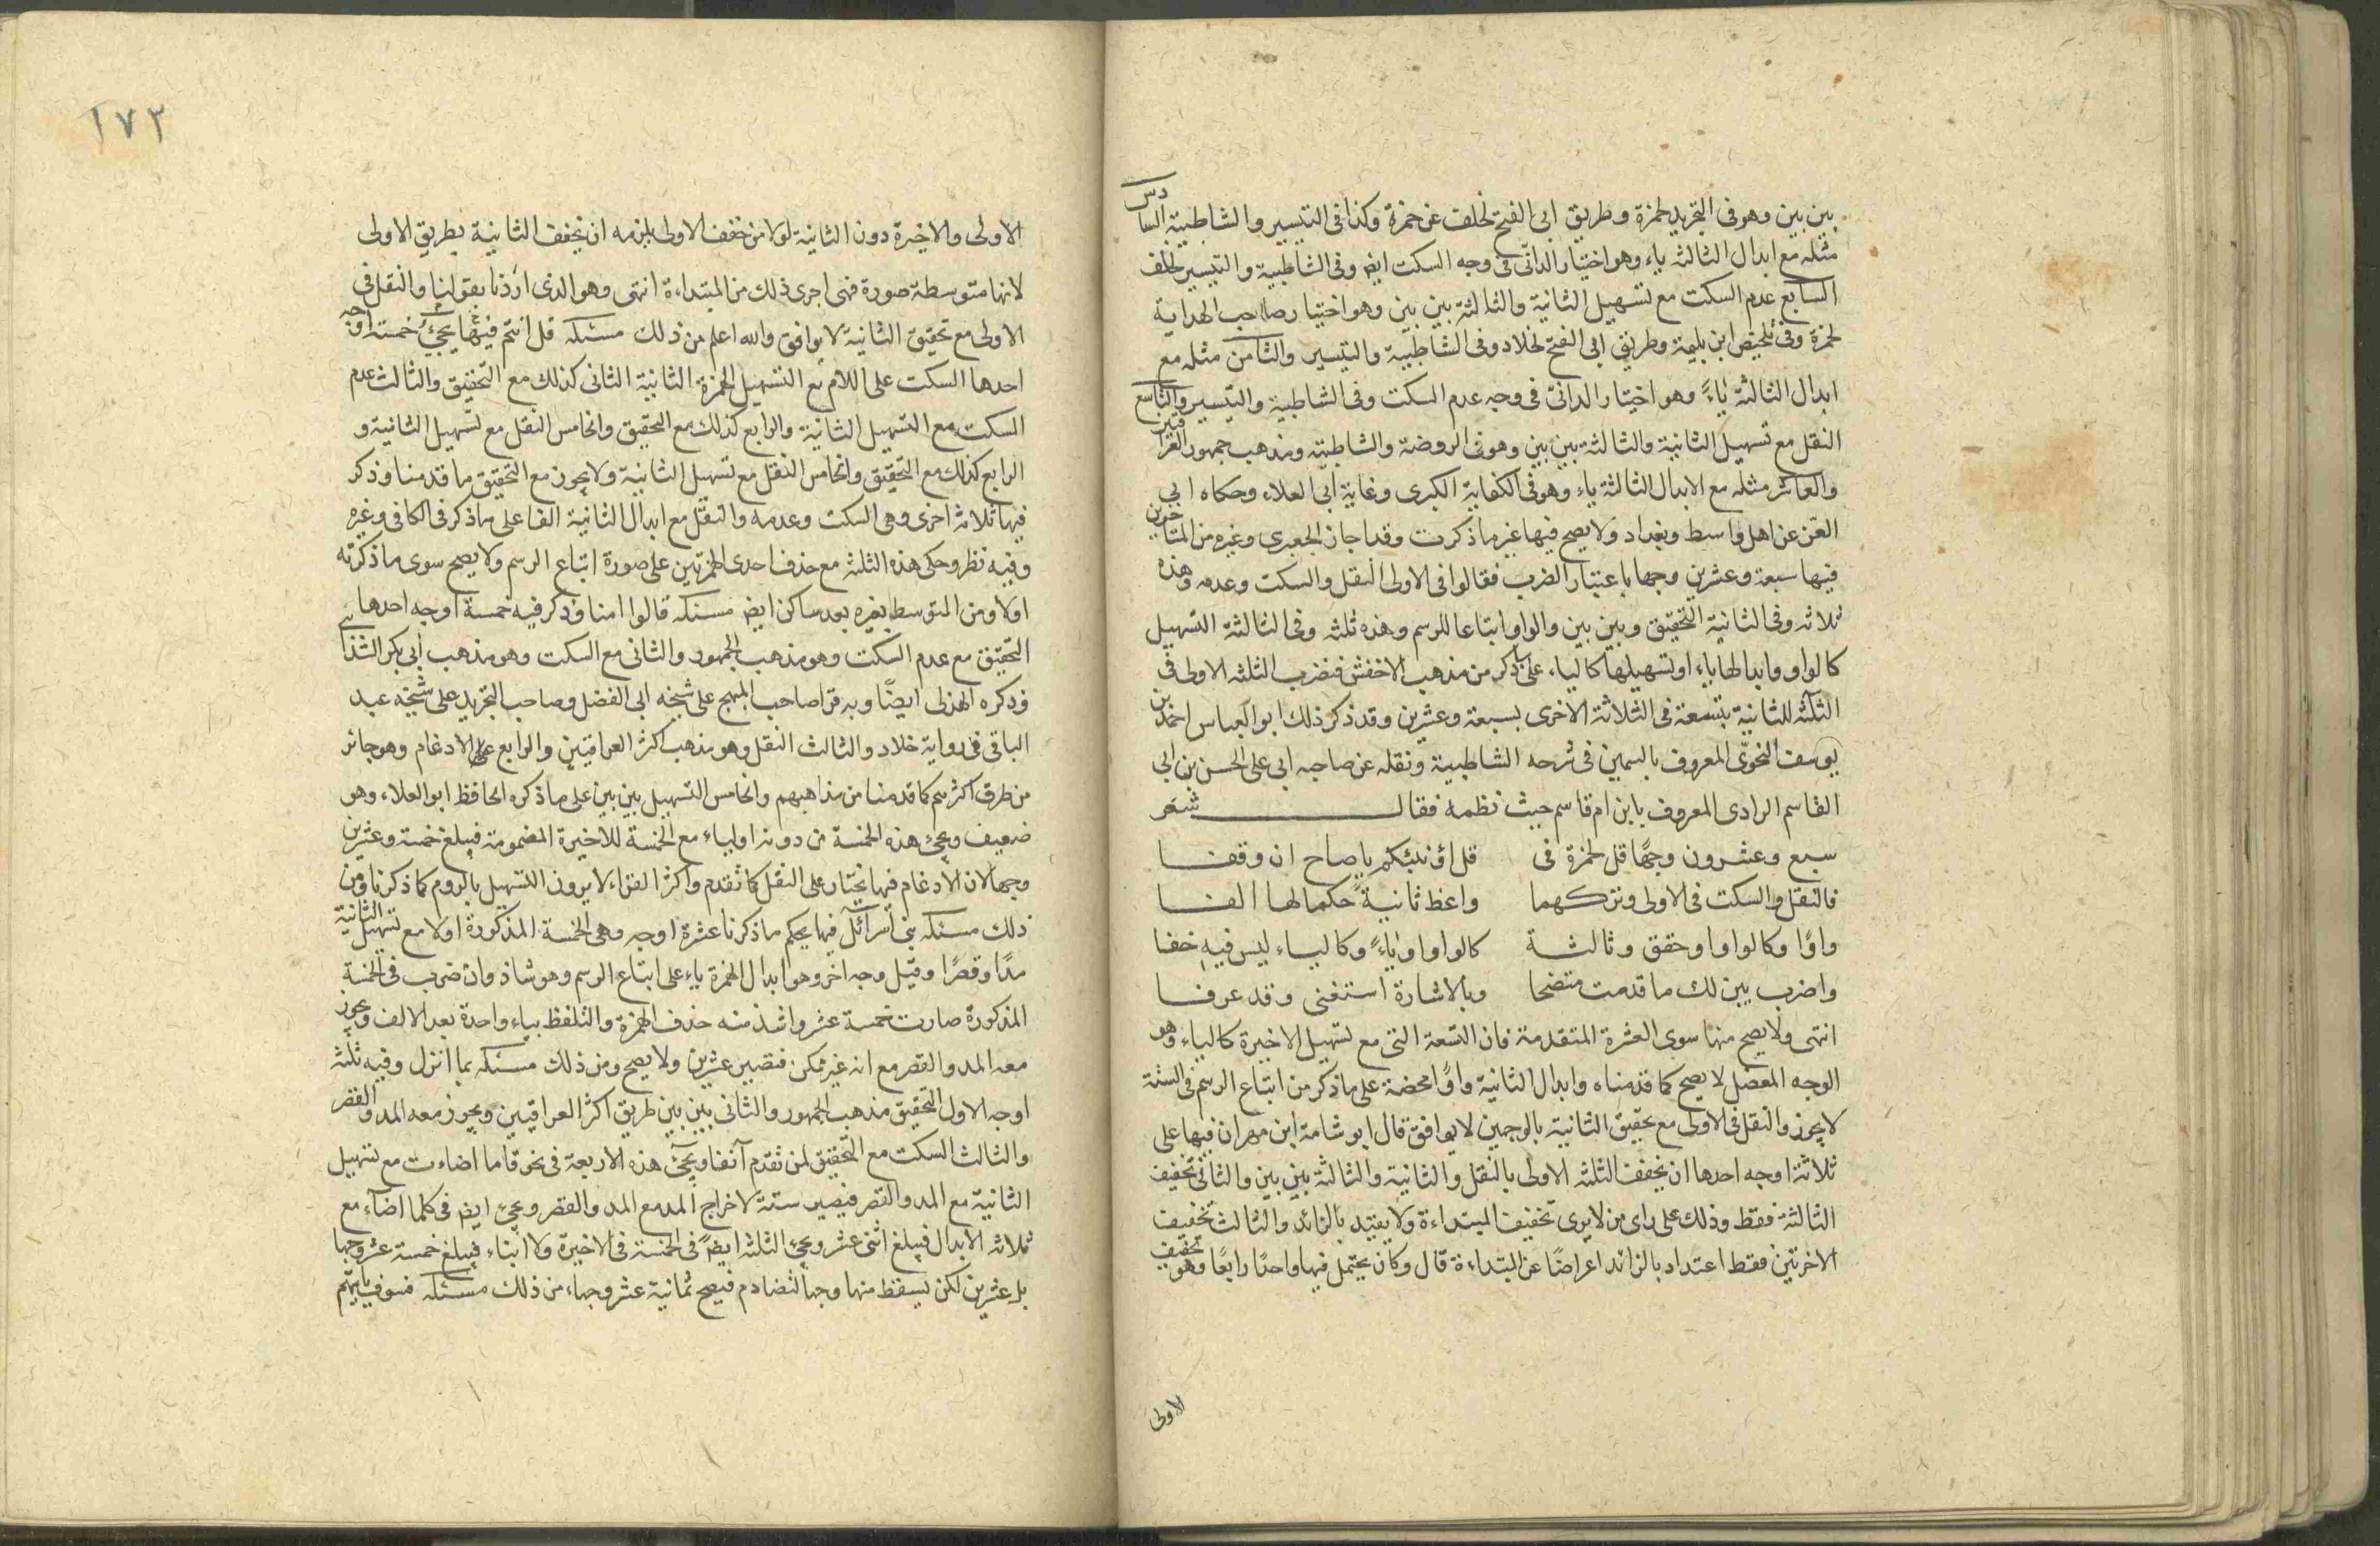 بين بين وهو فى التجريد لحمزة وطريق ابى الفتح لخلف عن حمزة وكذا فى التيسير والشاطبية السادس
مثله مع ابدال الثالثة ياء وهو اختيار الدانى فى وجه السكت ايض وفى الشاطبية والتيسير لخلف
السابع عدم السكت مع تسهيل الثانية والثالثة بين بين وهو اختيار صاحب الهداية
لحمزة وفى تلخيص ابن بليمة وطريق ابى الفتح لخلاد وفى الشاطبية والتيسير والثامن مثله مع
ابدال الثالثة ياءً وهو اختيار الدانىّ فى وجه عدم السكت وفى الشاطبية والتيسير والتاسع
النقل مع تسهيل الثانية والثالثة بين بين وهو فى الروضة والشاطبية ومذهب جمهور العراقيين
والعاشر مثله مع الابدال الثالثة ياء وهو فى الكفاية الكبرى وغاية ابى العلاء وحكاه ابى
العز عن اهل واسط وبغداد ولا يصح فيها غير ما ذكرت وقد اجاز الجعبرى وغيره من المتاخرين
فيها سبعة وعشرين وجها باعتبار الضرب فقالوا فى الاولى النقل والسكت وعدمه وهذه
ثلاثه وفى الثانية التحقيق وبين بين والواو اتباعا للرسم وهذه ثلثه وفى الثالثة التسهيل
كالواو وابدالها ياء او تسهيلها كالياء على ما ذكر من مذهب الاخفش فنضرب الثلثه الاولى فى
الثلثه الثانية بتسعة فى الثلاثة الاخرى بسبعة وعشرين وقد ذكر ذلك ابو العباس احمد بن
يوسف النحوىّ المعروف بالسمين فى شرحه الشاطبية ونقله عن صاحبه ابى على الحسن بن ابى
القاسم الرادى المعروف بابن ام قاسم حيث نظمه فقال شعر
سبع وعشرون وجهًا قل لحمزة فى قل اؤنبئكم يا صاح ان وقفا
فالنقل والسكت فى الاولى وتركهما واعط ثانيةً حكما لها الفا
واوًا وكالواو او حقق وثالثة كالواو او ياءً وكالياء ليس فيه خفا
واضرب يبين لك ما قدمت متضحا وبالاشارة استغنى وقد عرفا
انتهى ولا يصح منها سوى العشرة المتقدمة فان التسعة التى مع تسهيل الاخيرة كالياء وهو
الوجه المعضل لا يصح كما قدمناه وابدال الثانية واوًا محضة على ما ذكر من اتباع الرسم فى الستة
لا يجوز والنقل فى الاولى مع تحقيق الثانية بالوجهين لا يوافق قال ابو شامة ابن مهران فيها على
ثلاثة اوجه احدها ان يخفف الثلثه الاولى بالنقل والثانية والثالثة بين بين والثانى تخفيف
الثالثة فقط وذلك على راى من لا يرى تخفيف المبتداءة ولا يعتد بالزائد والثالث تخفيف
الاخرتين فقط اعتداد بالزائد اعراضًا عن المبتداءة قال وكان يحتمل فيها واحدًا رابعًا وهو تخفيف
الاولى
١٧٣
الاولى والاخيرة دون الثانية لولا من خفف الاولى يلزمه ان يخفف الثانية بطريق الاولى
لانها متوسطة صورة فهى اجرى ذلك من المبتداءة انتهى وهو الذى اردنا بقولنا والنقل فى
الاولى مع تحقيق الثانية لا يوافق والله اعلم من ذلك مسئله قل انتم فيها يجئ خمسة اوجه
احدها السكت على اللام مع التسهيل الهمزة الثانية الثانى كذلك مع التحقيق والثالث عدم
السكت مع التسهيل الثانية والرابع كذلك مع التحقيق والخامس النقل مع تسهيل الثانية و
الرابع كذلك مع التحقيق والخامس النقل مع تسهيل الثانية ولا يجوز مع التحقيق ما قدمنا وذكر
فيها ثلاثة اخرى وهى السكت وعدمه والنقل مع ابدال الثانية الفا على ما ذكر فى الكافى وغيره
وفيه نظر وحكى هذه الثلثه مع حذف احدى الهمزتين على صورة اتباع الرسم ولا يصح سوى ما ذكرته
اولا ومن المتوسط بغيره بعد ساكن ايض مسئله قالوا امنا وذكر فيه خمسة اوجه احدها
التحقيق مع عدم السكت وهو مذهب الجمهور والثانى مع السكت وهو مذهب ابى بكر الشذائى
وذكره الهذلى ايضًا وبه قرا صاحب المبهج على شيخه ابى الفضل وصاحب التجريد على شيخه عبد
الباقى فى رواية خلاد والثالث النقل وهو مذهب اكثر العراقيين والرابع على الادغام وهو جائز
من طرق اكثرهم كما قدمنا من مذاهبهم والخامس التسهيل بين بين على ما ذكره الحافظ ابو العلاء وهو
ضعيف ويجئ هذه الخمسة من دونه اولياء مع الخمسة للاخيرة المضمومة فيبلغ خمسة وعشرين
وجها لان الادغام فيها يختار على النقل كما تقدم واكثر القراء لا يرون التسهيل بالروم كما ذكرنا ومن
ذلك مسئله بنى اسرائل فيها يحكم ما ذكرنا عشرة اوجه وهى الخمسة المذكورة اولا مع تسهيل الثانية
مدًا وقصرًا وقيل وجه اخر وهو ابدال الهمزة ياء على اتباع الرسم وهو شاذ وان ضرب فى الخمسة
المذكورة صارت خمسة عشر واشذ منه حذف الهمزة والتلفظ بياء واحدة بعد الالف ويجوز
معه المد والقصر مع انه غير ممكن فتصير عشرين ولا يصح ومن ذلك مسئله بما انزل وفيه ثلثه
اوجه الاول التحقيق مذهب الجمهور والثانى بين بين طريق اكثر العراقيين ويجوز معه المد والقصر
والثالث السكت مع التحقيق لمن تقدم آنفا ويجئ هذه الاربعة فى نحو فاما اضاءت مع تسهيل
الثانية مع المد والقصر فيصير ستة لاخراج المد مع المد والقصر ويجئ ايض فى كلما اضآء مع
ثلاثه الابدال فيبلغ اثنى عشر ويجئ الثلثه ايضً فى الخمسة فى الاخيرة ولا ابناء فيبلغ خمسة عشر وجها
بل عشرين لكن يسقط منها وجها لتضادم فيصح ثمانية عشر وجها، من ذلك مسئله فسوف ياتيهم